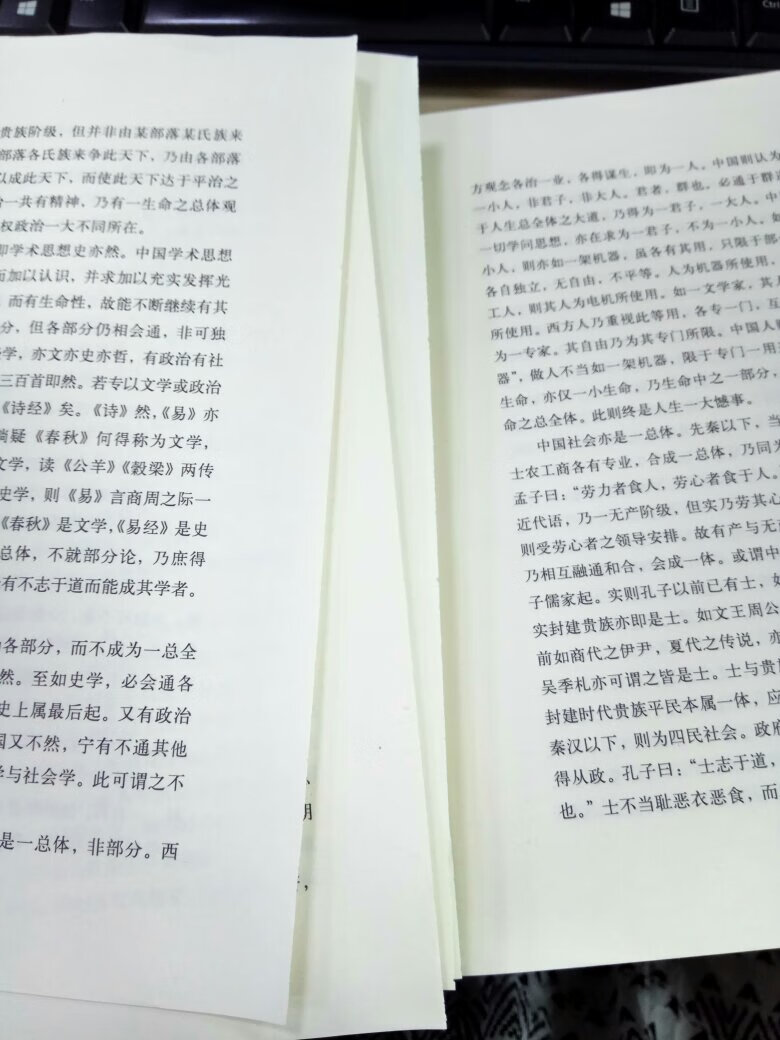 贵族阶级，但并非由某部落某氏族来
部落各氏族来争此天下，乃由各部落
以成此天下，而使此天下达于平治之
一共有精神、乃有一生命之总体观
权政治一大不同所在。
即学术思想史亦然。中国学术思想
而加以认识，并求加以充实发挥光
，而有生命性，故能不断继续有其
分，但各部分仍相会通，非可独
学，亦文亦史亦哲，有政治有社
三百首即然。若专以文学或政治
《诗经》矣。《诗》然，《易》亦
倘疑《春秋》何得称为文学，
文学，读《公羊》《穀梁》两传
史学，则《易》言商周之际一
《春秋》是文学，《易经》是史
总体，不就部分论，乃庶得
有不志于道而能成其学者。
各部分，而不成为一总全
然。至如史学，必会通各
史上属最后起。又有政治
国又不然，宁有不通其他
学与社会学。此可谓之不
是一总体，非部分。西
方观念各治一业，各得谋生，即为一人。中国则认为
一小人，非君子，非大人。君者，群也。必通于群道
于人生总全体之大道，乃得为一君子，一大人。中
一切学问思想，亦在求为一君子，不为一小人。如
小人，则亦如一架机器，虽各有其用，只限于部
各自独立，无自由，不平等。人为机器所使用，
工人，则其人为电机所使用。如一文学家，其人
所使用。西方人乃重视此等用，各专一门，互
为一专家。其自由乃为其专门所限。中国人
器”，做人不当如一架机器，限于专门一用
生命，亦仅一小生命，乃生命中之一部分，
命之总全体。此则终是人生一大憾事。
中国社会亦是一总体。先秦以下，当
士农工商各有专业，合成一总体，乃同为
孟子曰：“劳力者食人，劳心者食于人。
近代语，乃一无产阶级，但实乃劳其心
则受劳心者之领导安排。故有产与无
乃相互融通和合，会成一体。或谓中
子儒家起。实则孔子以前已有士，如
实封建贵族亦即是士。如文王周公
前如商代之伊尹，夏代之传说，亦
吴季札亦可谓之皆是士。士与贵
封建时代贵族平民本属一体，应
秦汉以下，则为四民社会。政府
得从政。孔子曰：“士志于道，
也。”士不当耻恶衣恶食，而